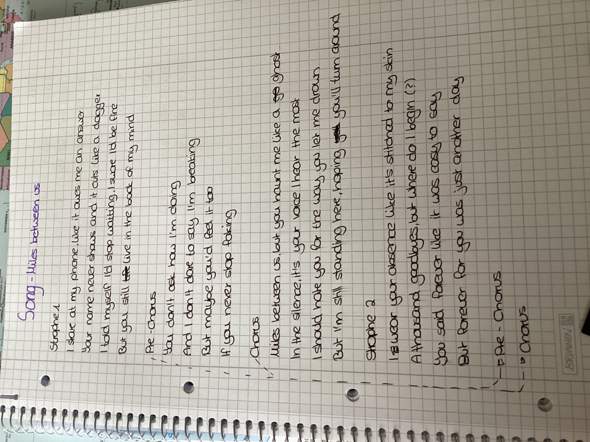 Song - Miles between us
Strophe 1
I stare at my phone, like it owes me an answer
Your name never shows and it cuts like a dagger
I told myself I'd stop waiting, I swore I'd be fine
But you still live in the back of my mind
Pre-Chorus
You don't ask how I'm doing
And I don't dare to say I'm breaking
But maybe you'd feel it too
If you never stop faking
Chorus
Miles between us, but you haunt me like a ghost
In the silence, it's your voice I hear the most
I should hate you for the way you let me drown
But I'm still standing here, hoping you'll turn around
Strophe 2
I wear your absence like it's stitched to my skin
A thousand goodbyes, but where do I begin (?)
You said forever like it was easy to say
But forever for you was just another day
→ Pre-Chorus
→ Chorus